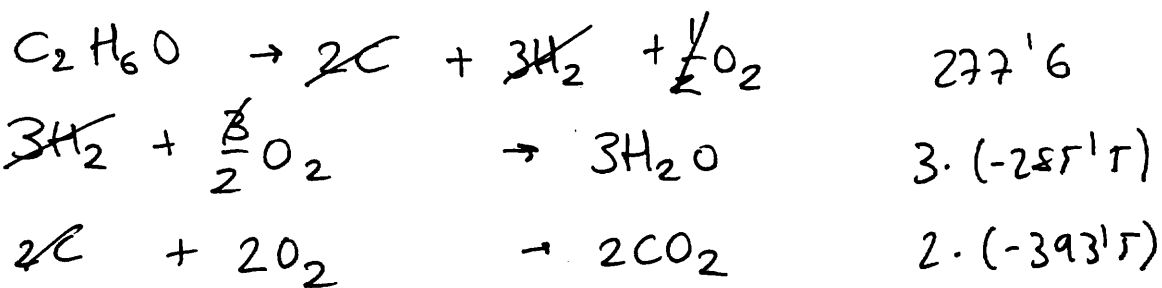 C₂H₆O → 2C + 3H₂ + 1/2 O₂ 277'6
3H₂ + 3/2 O₂ → 3H₂O 3·(-285'5)
2C + 2O₂ → 2CO₂ 2·(-393'5)